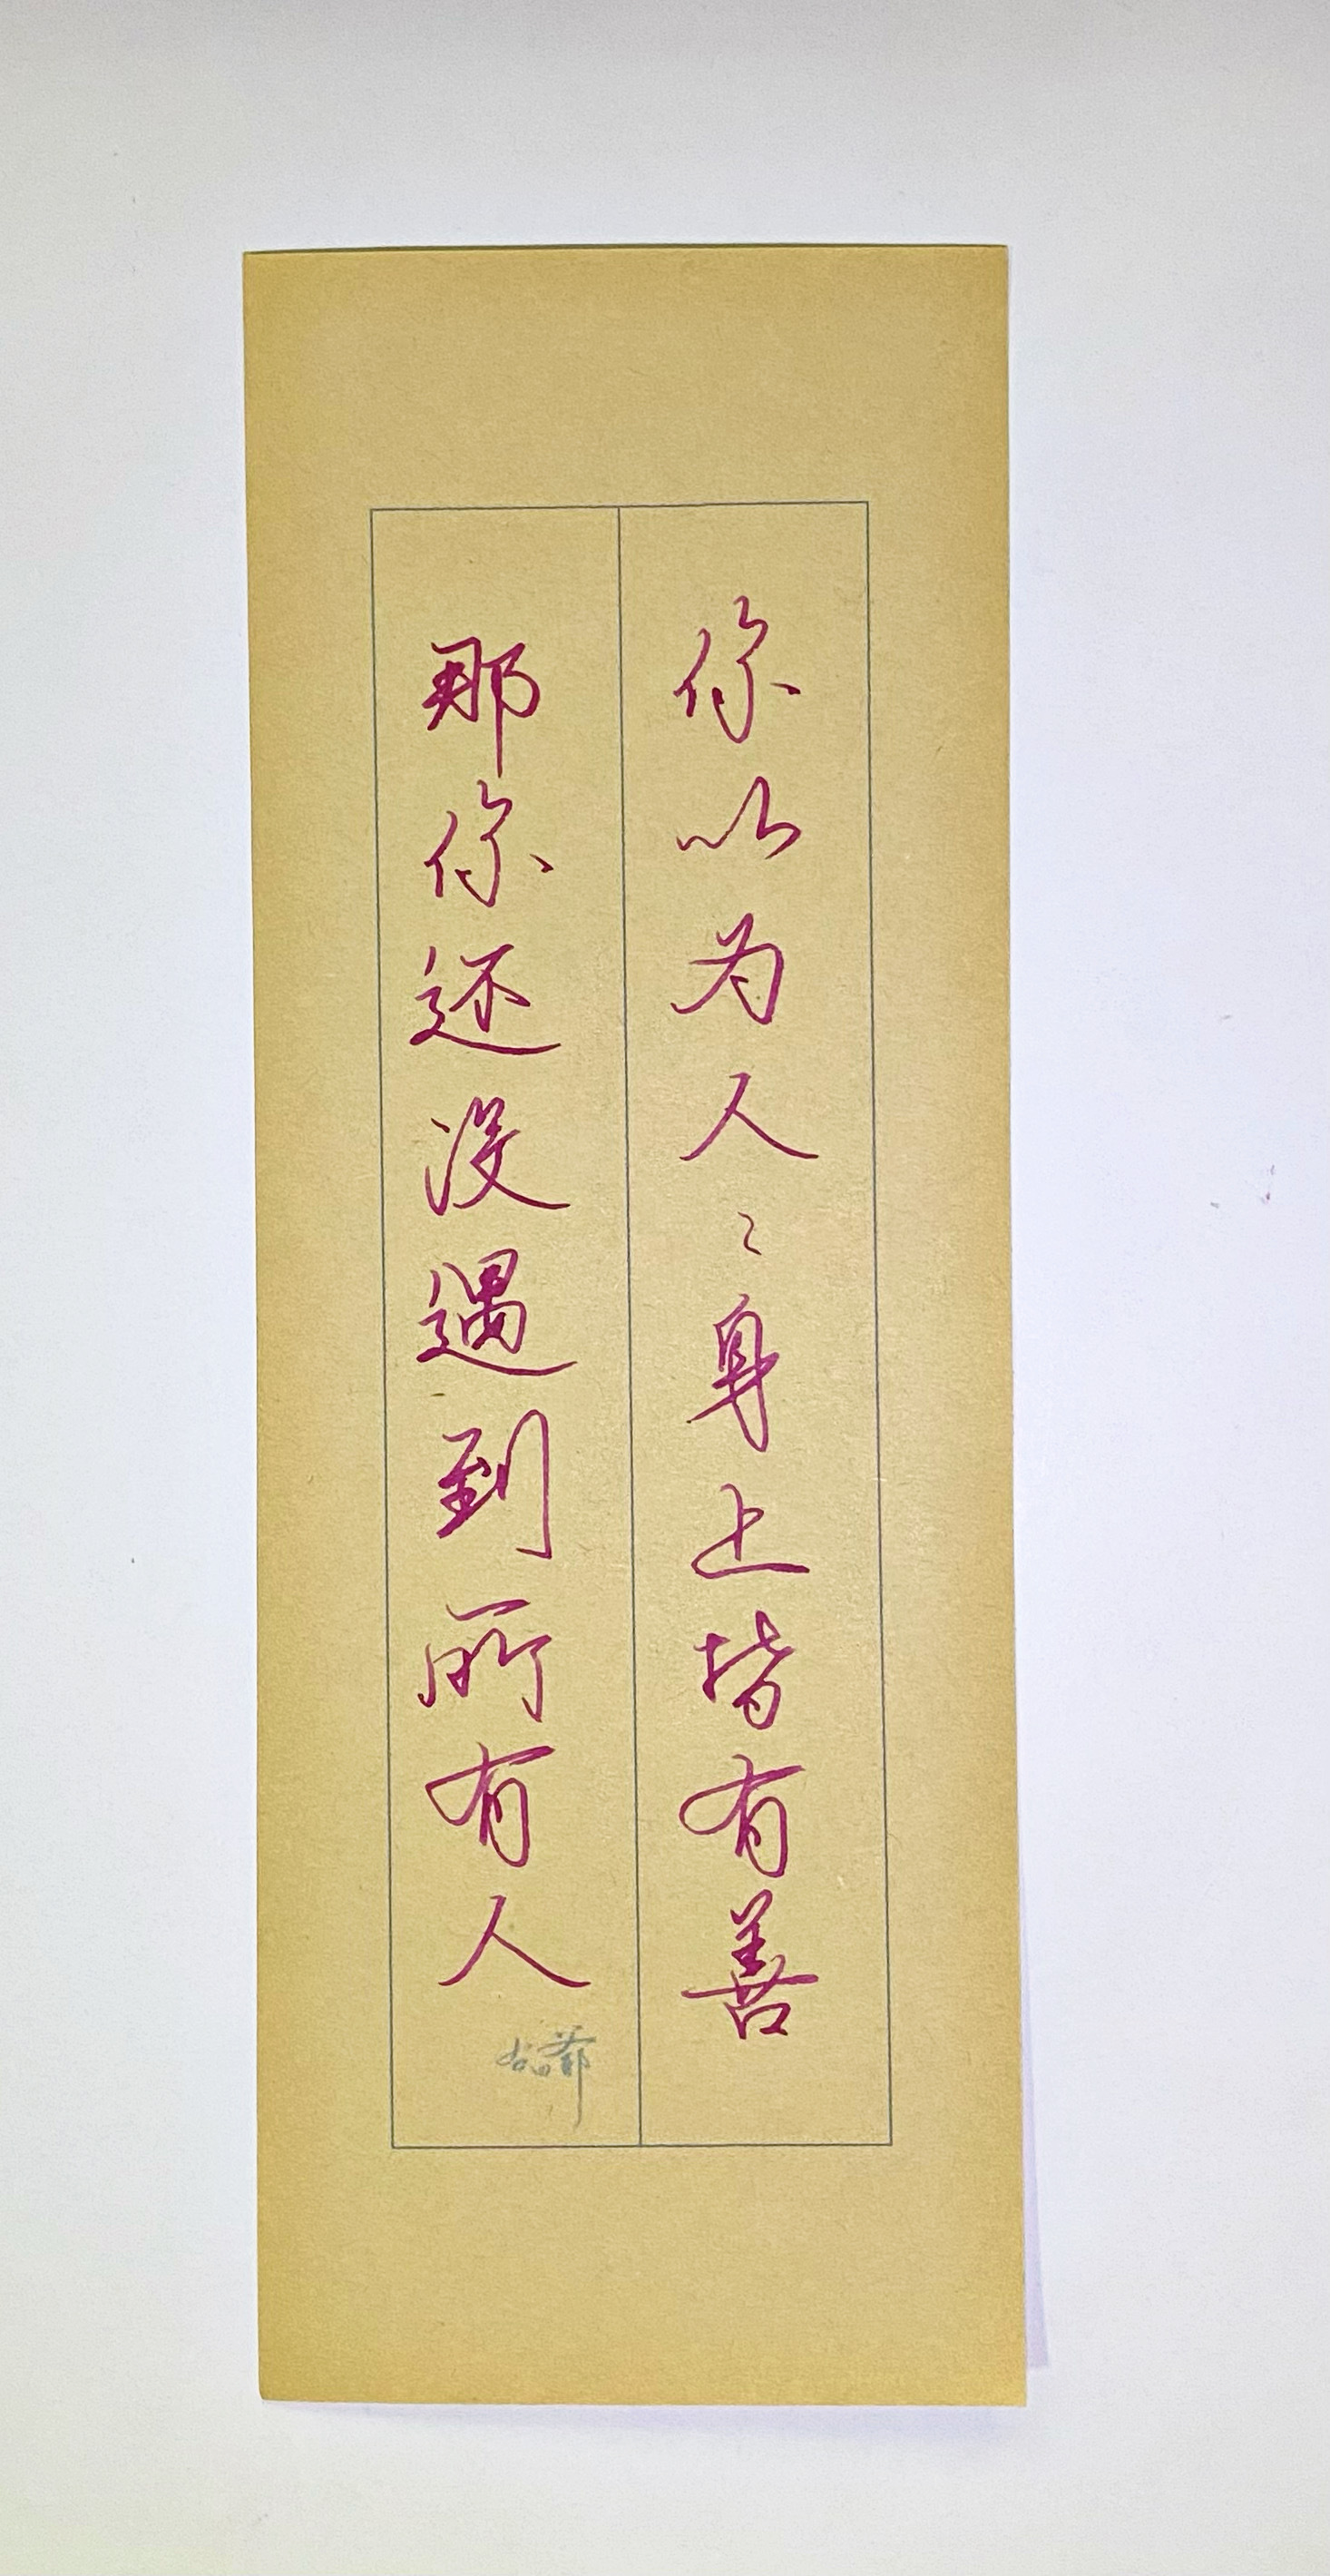 你以为人々身上皆有善
那你还没遇到所有人